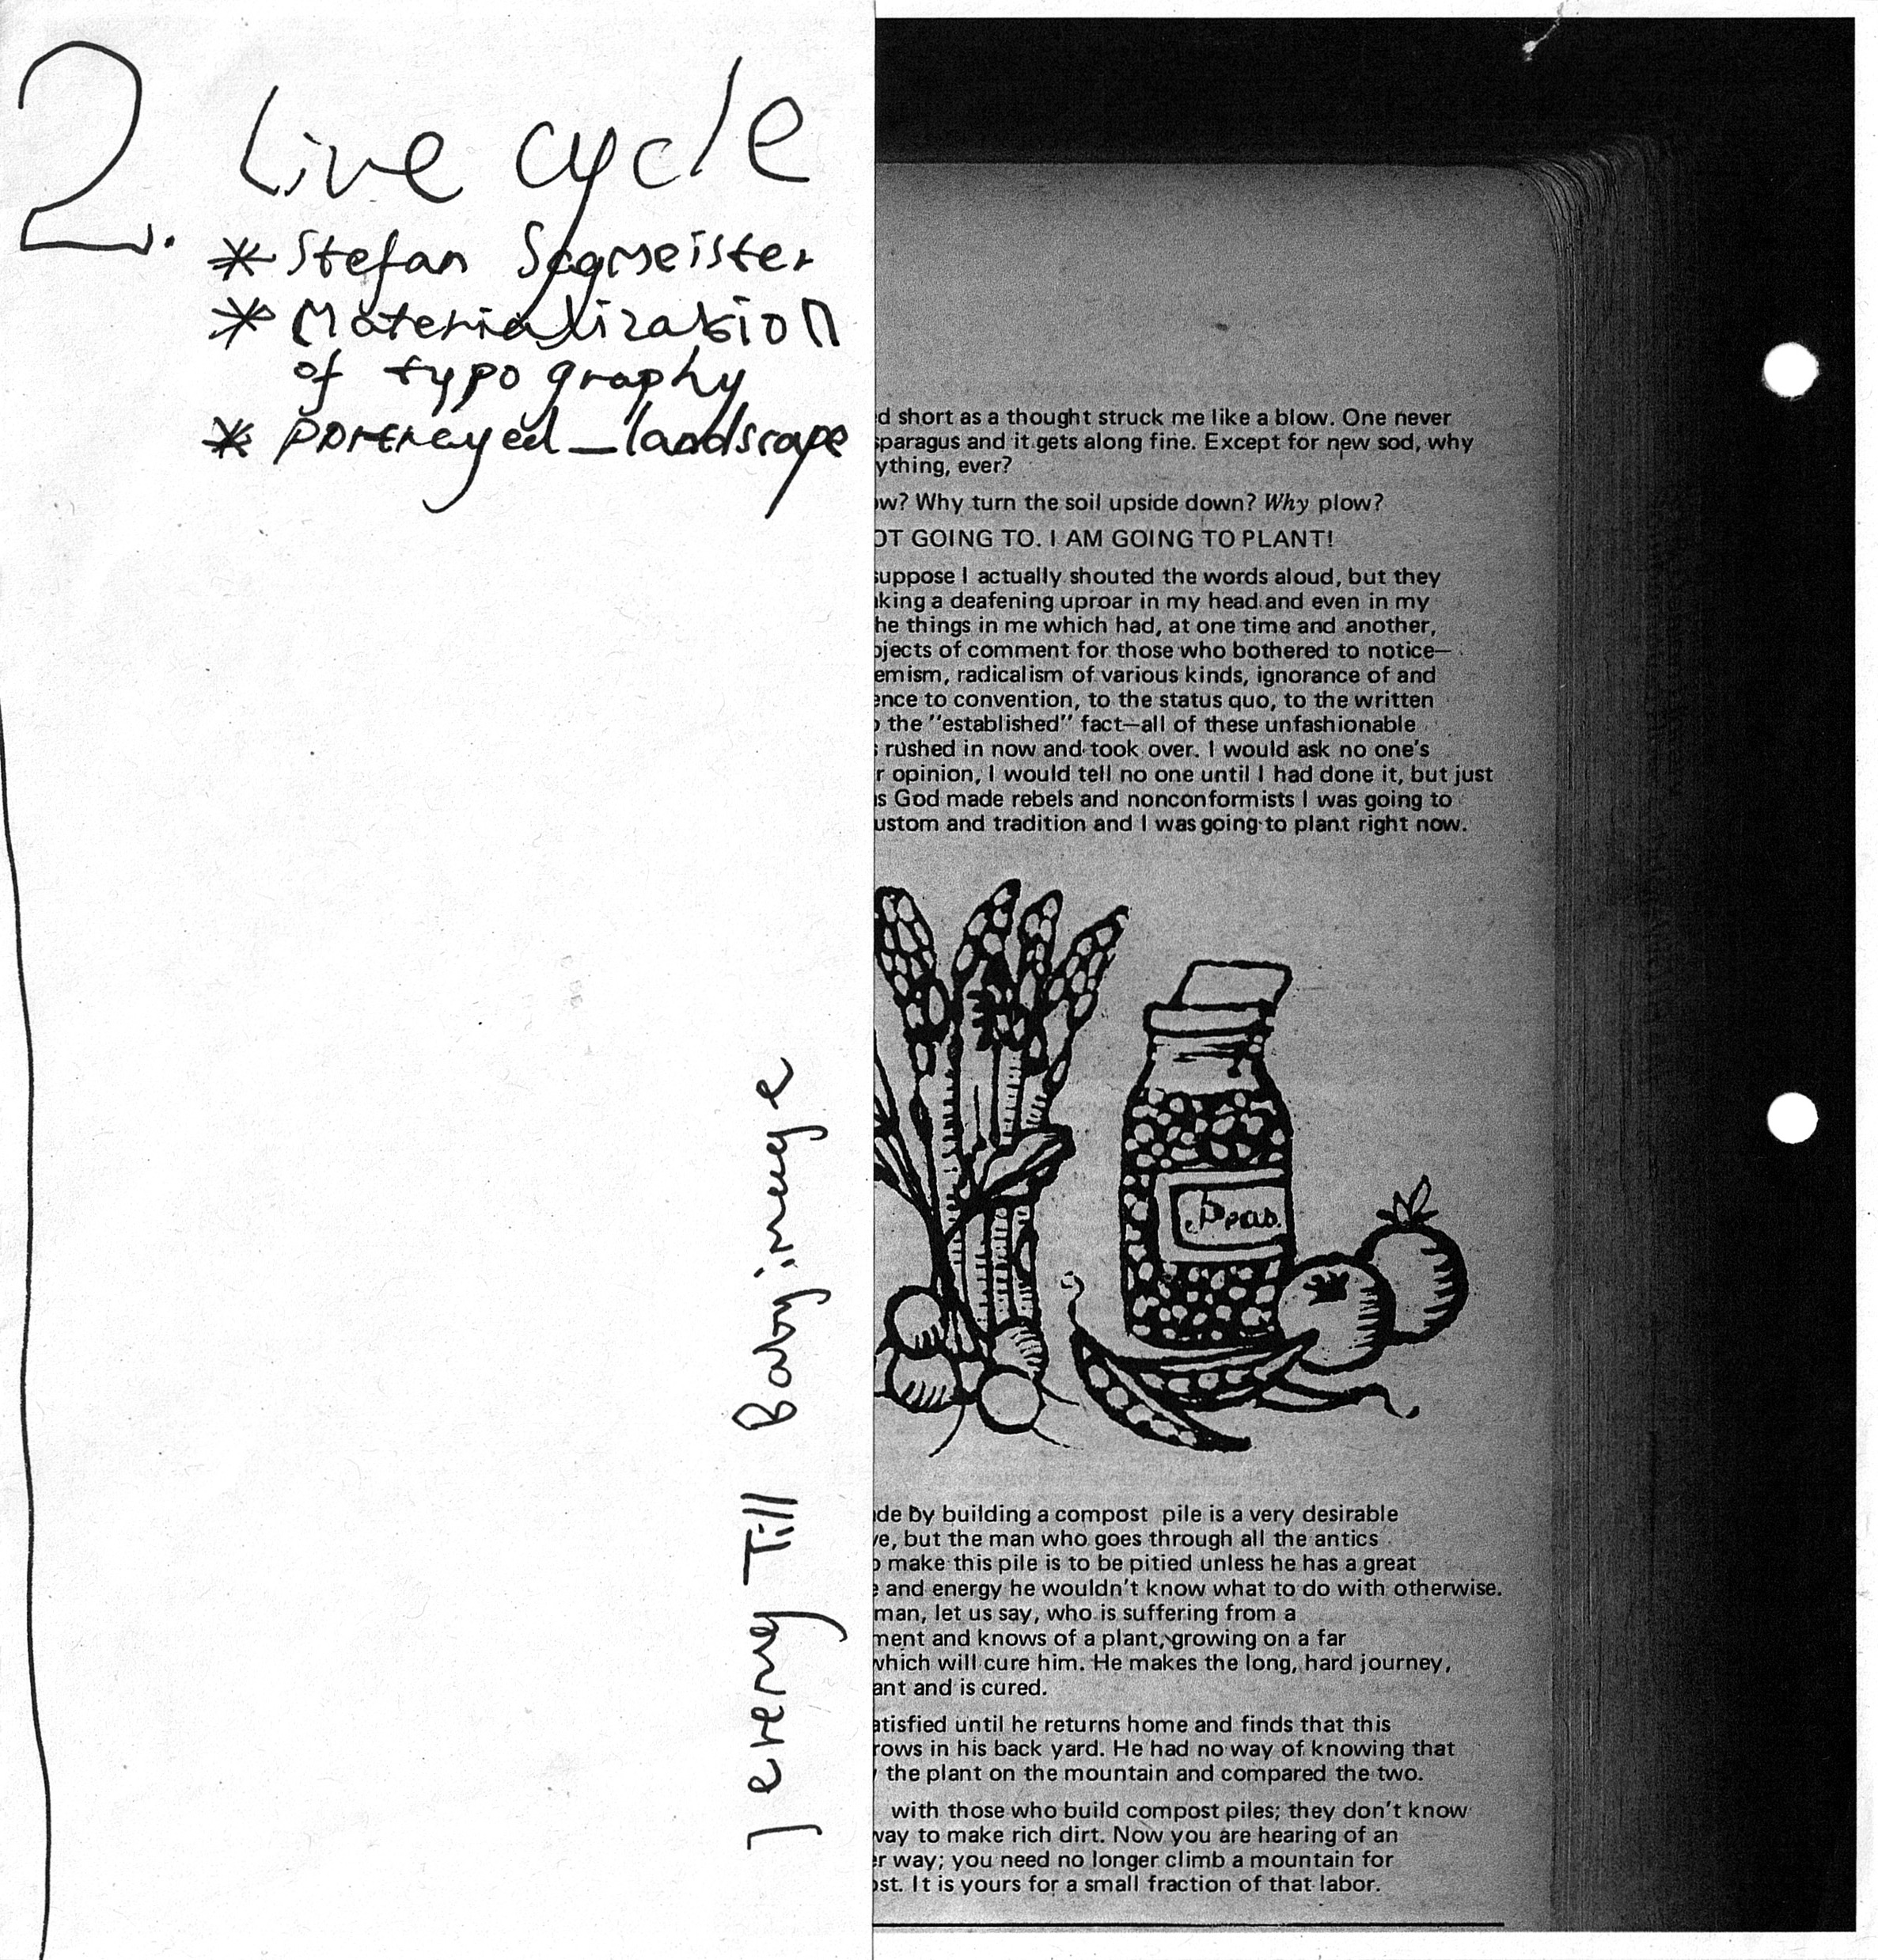 2. Live cycle
* Stefan Sagmeister
* Materialization
of typography
* portrayed_landscape
Jeremy Till Babyimage
ed short as a thought struck me like a blow. One never
sparagus and it gets along fine. Except for new sod, why
ything, ever?
ow? Why turn the soil upside down? Why plow?
OT GOING TO. I AM GOING TO PLANT!
suppose I actually shouted the words aloud, but they
aking a deafening uproar in my head and even in my
he things in me which had, at one time and another,
bjects of comment for those who bothered to notice—
emism, radicalism of various kinds, ignorance of and
ence to convention, to the status quo, to the written
o the "established" fact—all of these unfashionable
s rushed in now and took over. I would ask no one's
r opinion, I would tell no one until I had done it, but just
as God made rebels and nonconformists I was going to
ustom and tradition and I was going to plant right now.
Peas.
ade by building a compost pile is a very desirable
ve, but the man who goes through all the antics
o make this pile is to be pitied unless he has a great
e and energy he wouldn't know what to do with otherwise.
man, let us say, who is suffering from a
ment and knows of a plant, growing on a far
which will cure him. He makes the long, hard journey,
ant and is cured.
atisfied until he returns home and finds that this
rows in his back yard. He had no way of knowing that
y the plant on the mountain and compared the two.
with those who build compost piles; they don't know
way to make rich dirt. Now you are hearing of an
er way; you need no longer climb a mountain for
ost. It is yours for a small fraction of that labor.